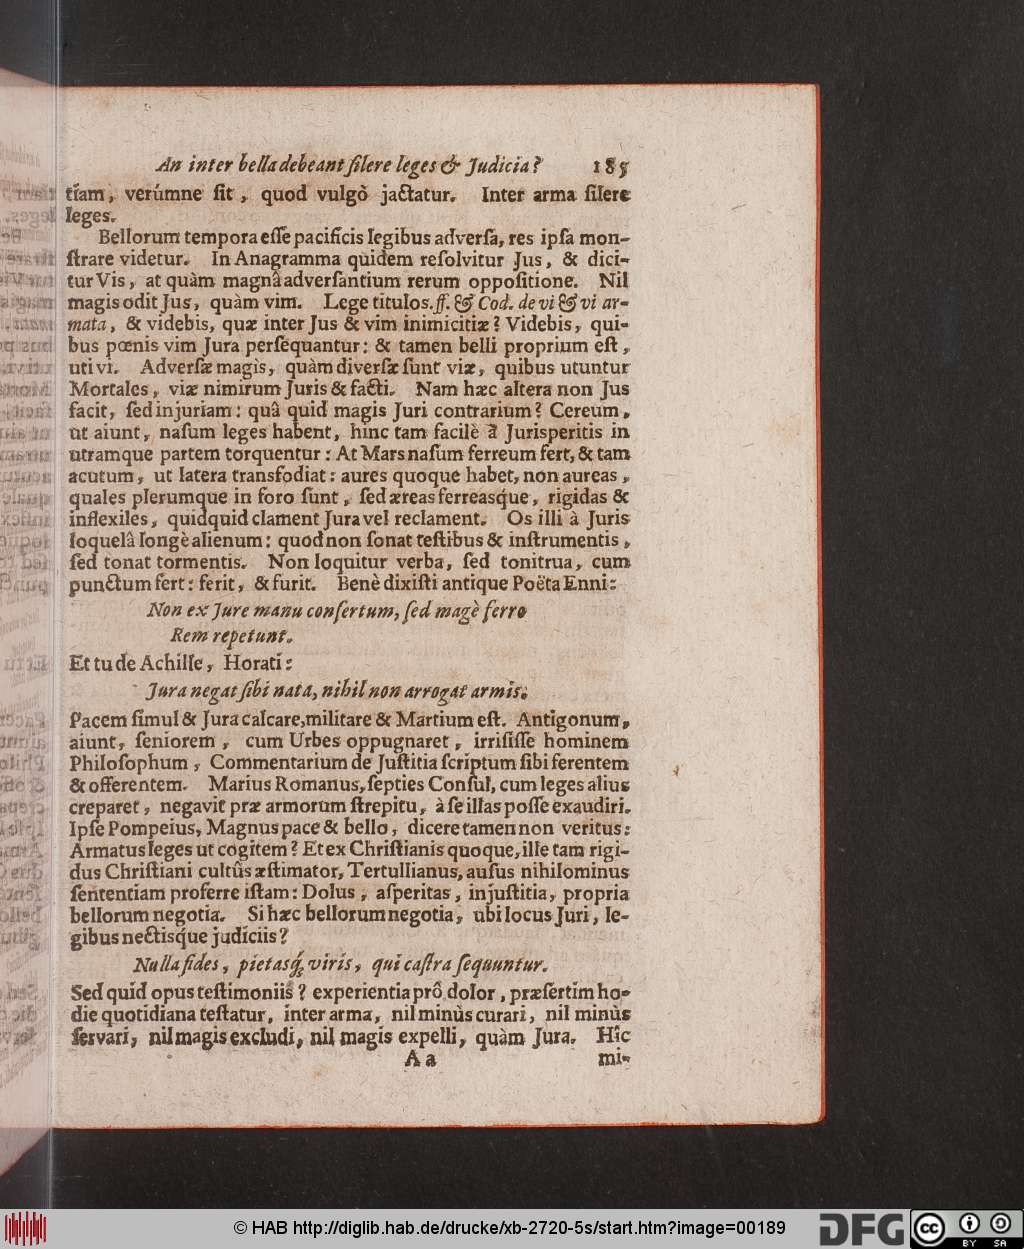 An inter bella debeant ſilere leges & Judicia? 185
tiam, verúmne ſit, quod vulgò jactatur. Inter arma ſilere
leges.
Bellorum tempora eſſe pacificis legibus adverſa, res ipſa mon-
ſtrare videtur. In Anagramma quidem reſolvitur Jus, & dici-
tur Vis, at quàm magnâ adverſantium rerum oppoſitione. Nil
magis odit Jus, quàm vim. Lege titulos. ff. & Cod. de vi & vi ar-
mata, & videbis, quæ inter Jus & vim inimicitiæ? Videbis, qui-
bus pœnis vim Jura perſequantur: & tamen belli proprium eſt,
uti vi. Adverſæ magis, quàm diverſæ ſunt viæ, quibus utuntur
Mortales, viæ nimirum Juris & facti. Nam hæc altera non Jus
facit, ſed injuriam: quâ quid magis Juri contrarium? Cereum,
ut aiunt, naſum leges habent, hinc tam facilè à Jurisperitis in
utramque partem torquentur: At Mars naſum ferreum fert, & tam
acutum, ut latera transfodiat: aures quoque habet, non aureas,
quales plerumque in foro ſunt, ſed æreas ferreasq́ue, rigidas &
inflexiles, quidquid clament Jura vel reclament. Os illi à Juris
loquelâ longè alienum: quod non ſonat teſtibus & inſtrumentis,
ſed tonat tormentis. Non loquitur verba, ſed tonitrua, cum
punctum fert: ferit, & furit. Benè dixiſti antique Poëta Enni:
Non ex Jure manu conſertum, ſed magè ferro
Rem repetunt.
Et tu de Achille, Horati:
Jura negat ſibi nata, nihil non arrogat armis.
Pacem ſimul & Jura calcare, militare & Martium eſt. Antigonum,
aiunt, ſeniorem, cum Urbes oppugnaret, irriſiſſe hominem
Philoſophum, Commentarium de Juſtitia ſcriptum ſibi ferentem
& offerentem. Marius Romanus, ſepties Conſul, cum leges alius
creparet, negavit præ armorum ſtrepitu, à ſe illas poſſe exaudiri.
Ipſe Pompeius, Magnus pace & bello, dicere tamen non veritus:
Armatus leges ut cogitem? Et ex Chriſtianis quoque, ille tam rigi-
dus Chriſtiani cultûs æſtimator, Tertullianus, auſus nihilominus
ſententiam proferre iſtam: Dolus, aſperitas, injuſtitia, propria
bellorum negotia. Si hæc bellorum negotia, ubi locus Juri, le-
gibus nectisq́ue judiciis?
Nulla fides, pietasq́; viris, qui caſtra ſequuntur.
Sed quid opus teſtimoniis? experientia prô dolor, præſertim ho-
die quotidiana teſtatur, inter arma, nil minùs curari, nil minùs
ſervari, nil magis excludi, nil magis expelli, quàm Jura. Hic
A a mi-
© HAB http://diglib.hab.de/drucke/xb-2720-5s/start.htm?image=00189
DFG
cc BY SA